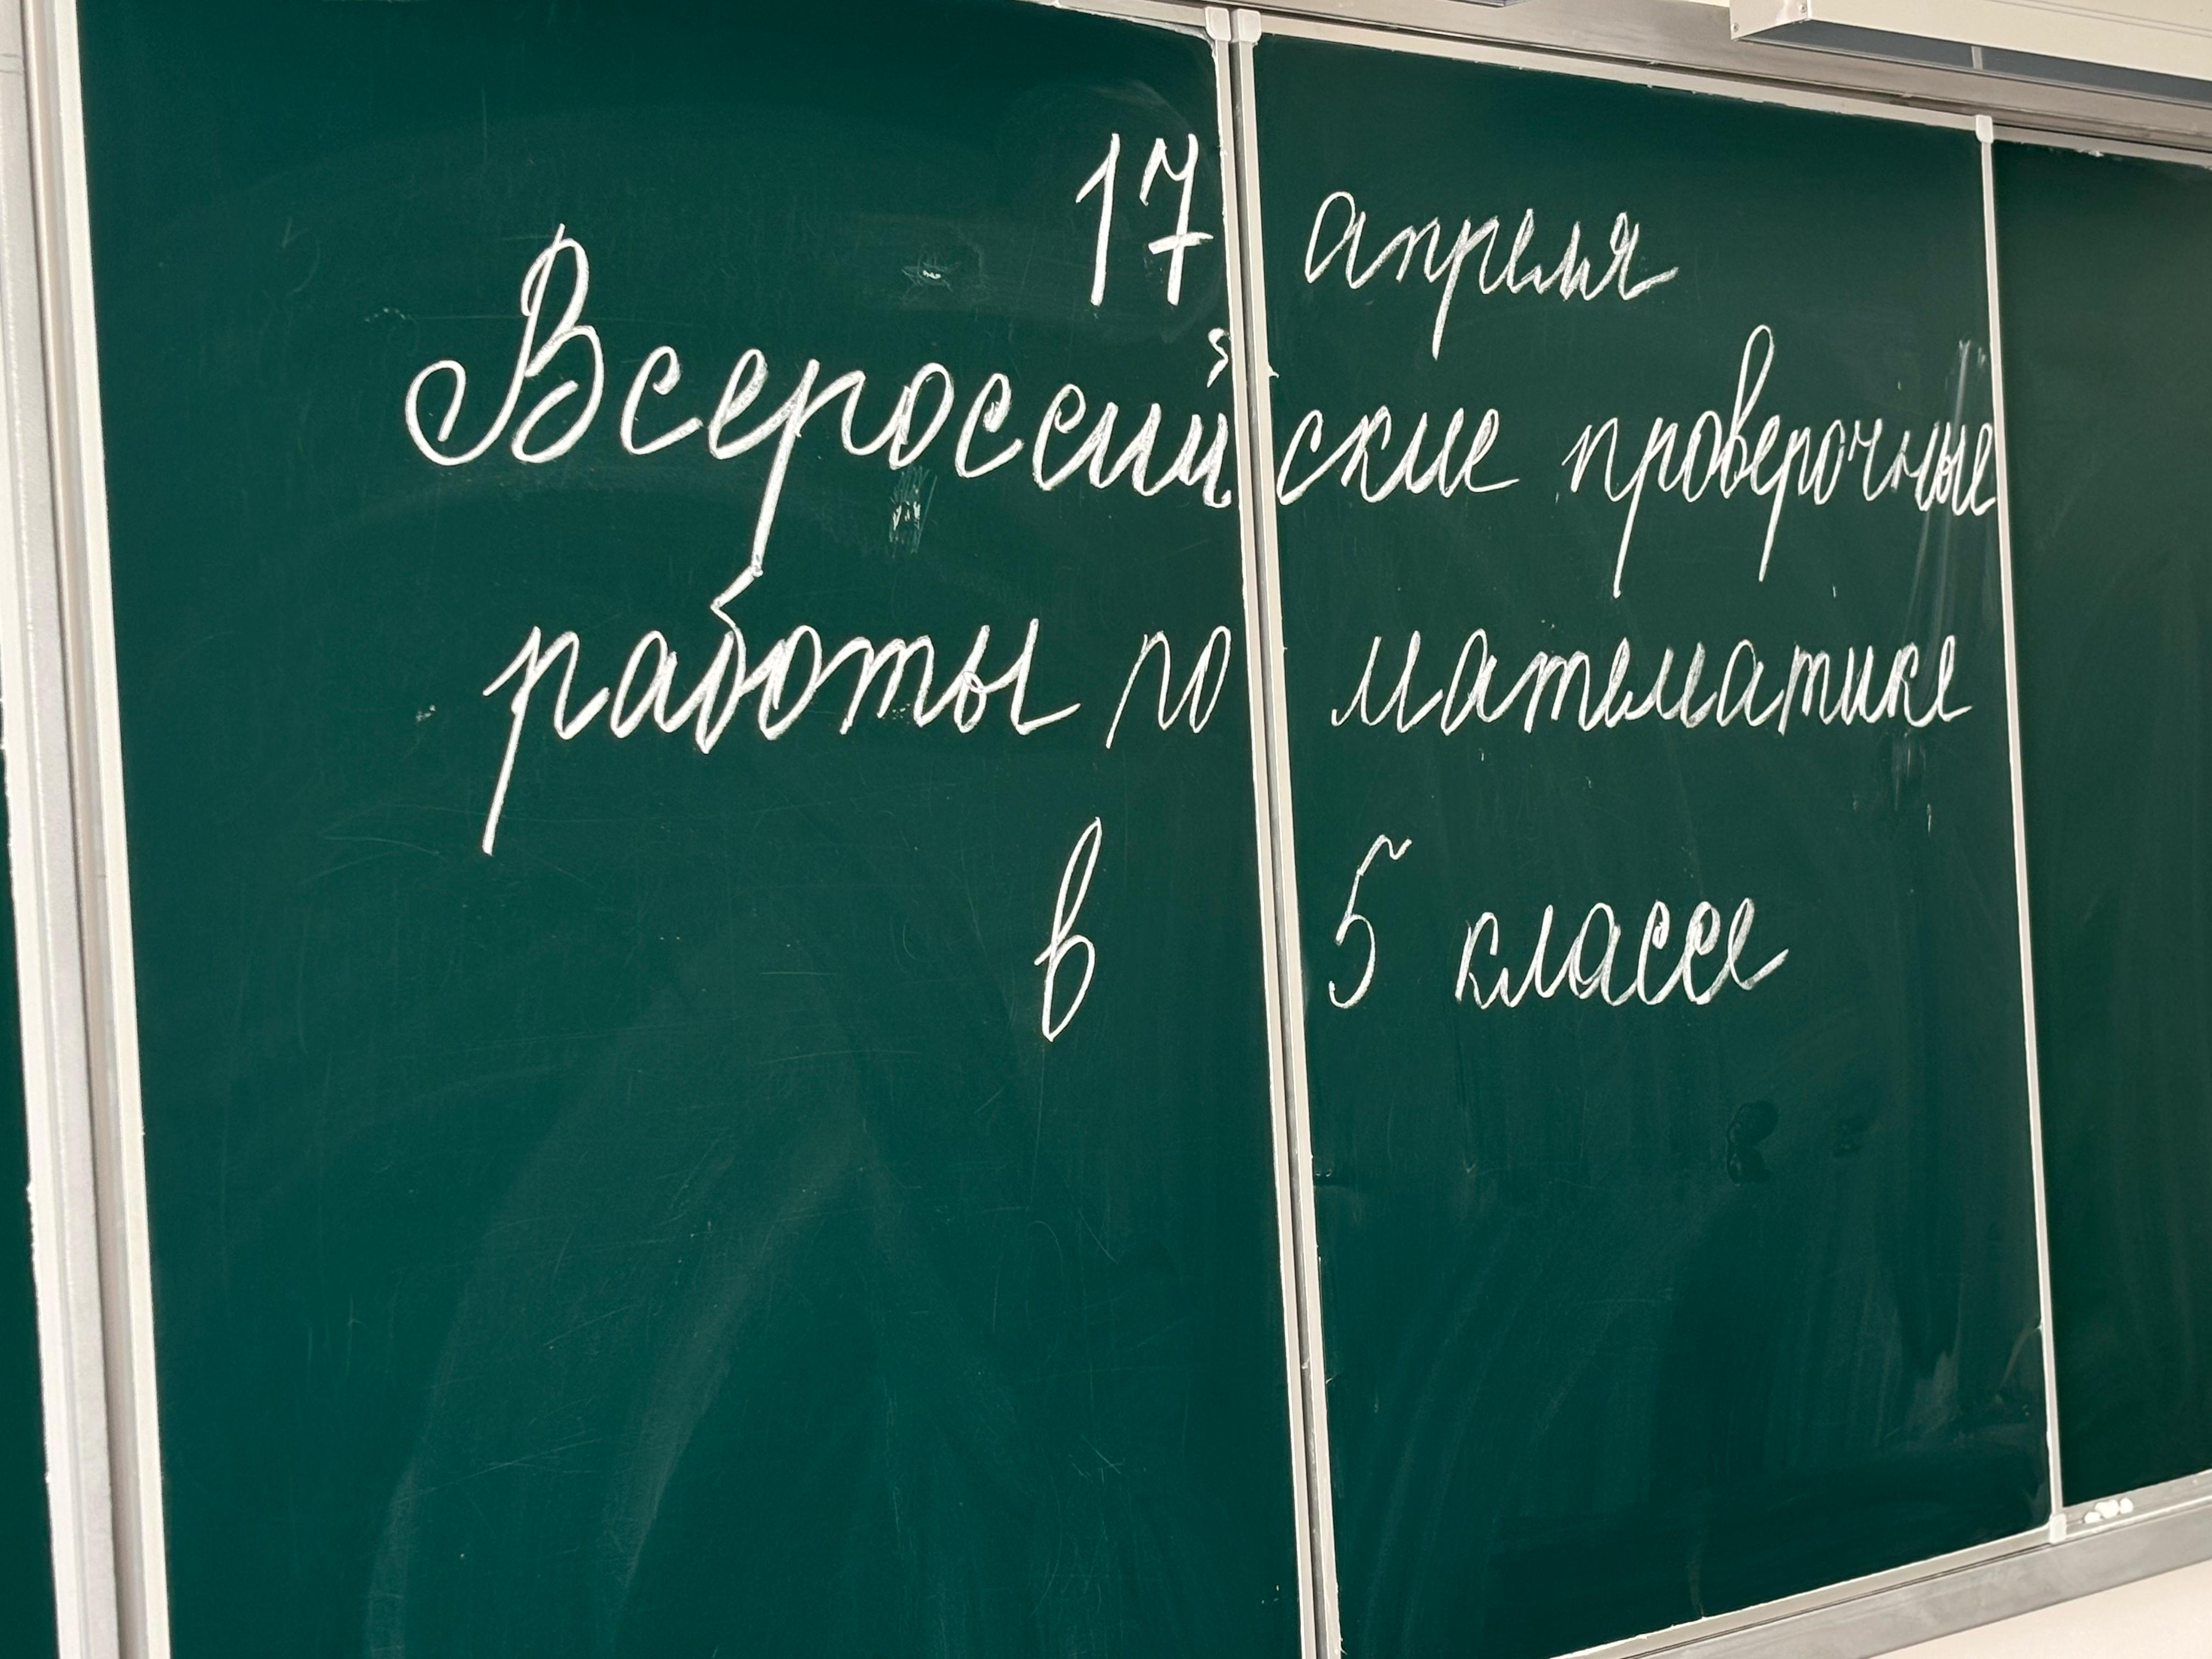 17 апреля
Всероссийские проверочные
работы по математике
в 5 классе